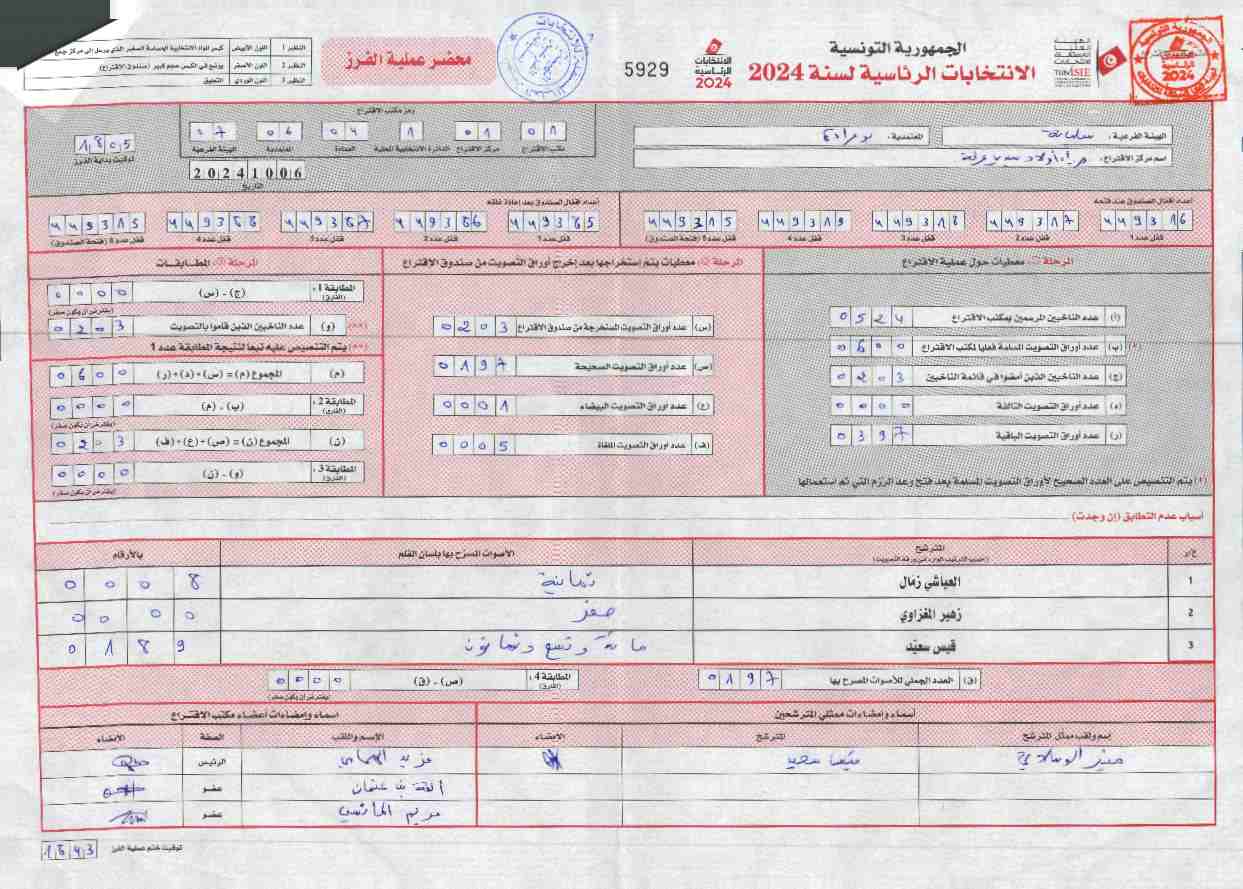 الجمهورية التونسية
الانتخابات الرئاسية لسنة 2024
الانتخابات الرئاسية 2024
5929
محضر عملية الفرز
النظير 1 اللون الأبيض
النظير 2 اللون الأصفر يوضع في الكيس حجم كبير (صندوق الاقتراع)
النظير 3 اللون الوردي التعليق
رمز مكتب الاقتراع
الهيئة الفرعية: سليانة المعتمدية: بوعرادة
01 01 1 04 06 07
مكتب الاقتراع مركز الاقتراع الدائرة الانتخابية المحلية العمادة المعتمدية الهيئة الفرعية
1805
توقيت بداية الفرز
اسم مركز الاقتراع:
20241006
التاريخ
أعداد أقفال الصندوق عند فتحه
449316 449317 449318 449319 449315
قفل عدد 1 قفل عدد 2 قفل عدد 3 قفل عدد 4 قفل عدد 5 (فتحة الصندوق)
أعداد أقفال الصندوق بعد إعادة غلقه
449385 449386 449387 449388 449315
قفل عدد 1 قفل عدد 2 قفل عدد 3 قفل عدد 4 قفل عدد 5 (فتحة الصندوق)
المرحلة 1: معطيات حول عملية الاقتراع
(أ) عدد الناخبين المرسمين بمكتب الاقتراع 0524
(*) (ب) عدد أوراق التصويت المسلمة فعليا لمكتب الاقتراع 0600
(ج) عدد الناخبين الذين أمضوا في قائمة الناخبين 0203
(د) عدد أوراق التصويت التالفة 0000
(ر) عدد أوراق التصويت الباقية 0397
(*) يتم التنصيص على العدد الصحيح لأوراق التصويت المسلمة بعد فتح وعد الرزم التي تم استعمالها
المرحلة 2: معطيات يتم إستخراجها بعد إخراج أوراق التصويت من صندوق الاقتراع
(س) عدد أوراق التصويت المستخرجة من صندوق الاقتراع 0203
(ص) عدد أوراق التصويت الصحيحة 0197
(ع) عدد اوراق التصويت البيضاء 0001
(ف) عدد اوراق التصويت الملغاة 0005
المرحلة 3: المطابقات
المطابقة 1: (الفارق) (ج) - (س) 0000
(يفترض أن يكون صفر)
(**) (و) عدد الناخبين الذين قاموا بالتصويت 0203
(**) يتم التنصيص عليه تبعا لنتيجة المطابقة عدد 1
(م) المجموع (م) = (س) + (د) + (ر) 0600
المطابقة 2: (الفارق) (ب) - (م) 0000
(يفترض أن يكون صفر)
(ن) المجموع (ن) = (ص) + (ع) + (ف) 0203
المطابقة 3: (الفارق) (و) - (ن) 0000
(يفترض أن يكون صفر)
أسباب عدم التطابق (إن وجدت)
ع/ر المترشح الأصوات المسرح بها بلسان القلم بالأرقام
(حسب الترتيب الوارد في ورقة التصويت)
1 العياشي زمال ثمانية 0008
2 زهير المغزاوي صفر 0000
3 قيس سعيّد مائة وتسع وثمانون 0189
(ق) العدد الجملي للأصوات المسرح بها 0197
المطابقة 4: (الفارق) (ص) - (ق) 0000
(يفترض أن يكون صفر)
أسماء وإمضاءات ممثلي المترشحين
إسم ولقب ممثل المترشح المترشح الامضاء
قيس سعيد
اسماء وإمضاءات أعضاء مكتب الاقتراع
الإسم واللقب الصفة الامضاء
الرئيس
ألفة بن عثمان عضو
مريم عضو
توقيت ختم عملية الفرز 1843